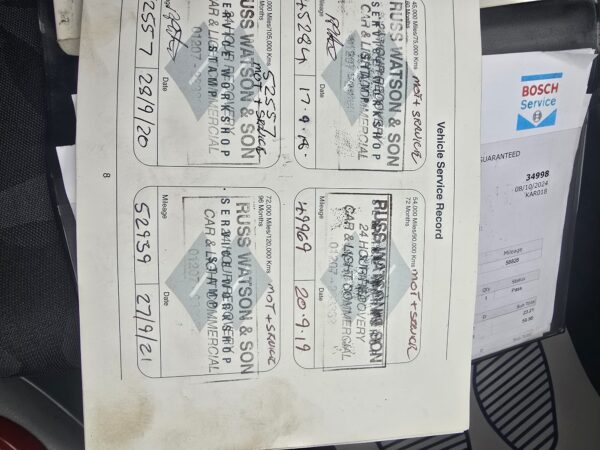 Vehicle Service Record
45,000 Miles/75,000 Kms
60 Months
MOT + SERVICE
RUSS WATSON & SON
CAR & LIGHT COMMERCIAL
Mileage
45284
Date
17.9.18.
54,000 Miles/90,000 Kms
72 Months
MOT + SERVICE
RUSS WATSON & SON
24 HOUR RECOVERY
CAR & LIGHT COMMERCIAL
01207
Mileage
49969
Date
20.9.19
,000 Miles/105,000 Kms
Months
52557
MOT + SERVICE
RUSS WATSON & SON
SERVICE WORKSHOP
CAR & LIGHT COMMERCIAL
STAMP
01207
2557
Date
28/9/20
72,000 Miles/120,000 Kms
96 Months
MOT + SERVICE
RUSS WATSON & SON
SERVICE WORKSHOP
CAR & LIGHT COMMERCIAL
STAMP
01207
Mileage
52939
Date
27/9/21
8
BOSCH
Service
GUARANTEED
34998
08/10/2024
KAR018
Mileage
Status
Pass
Sub Total